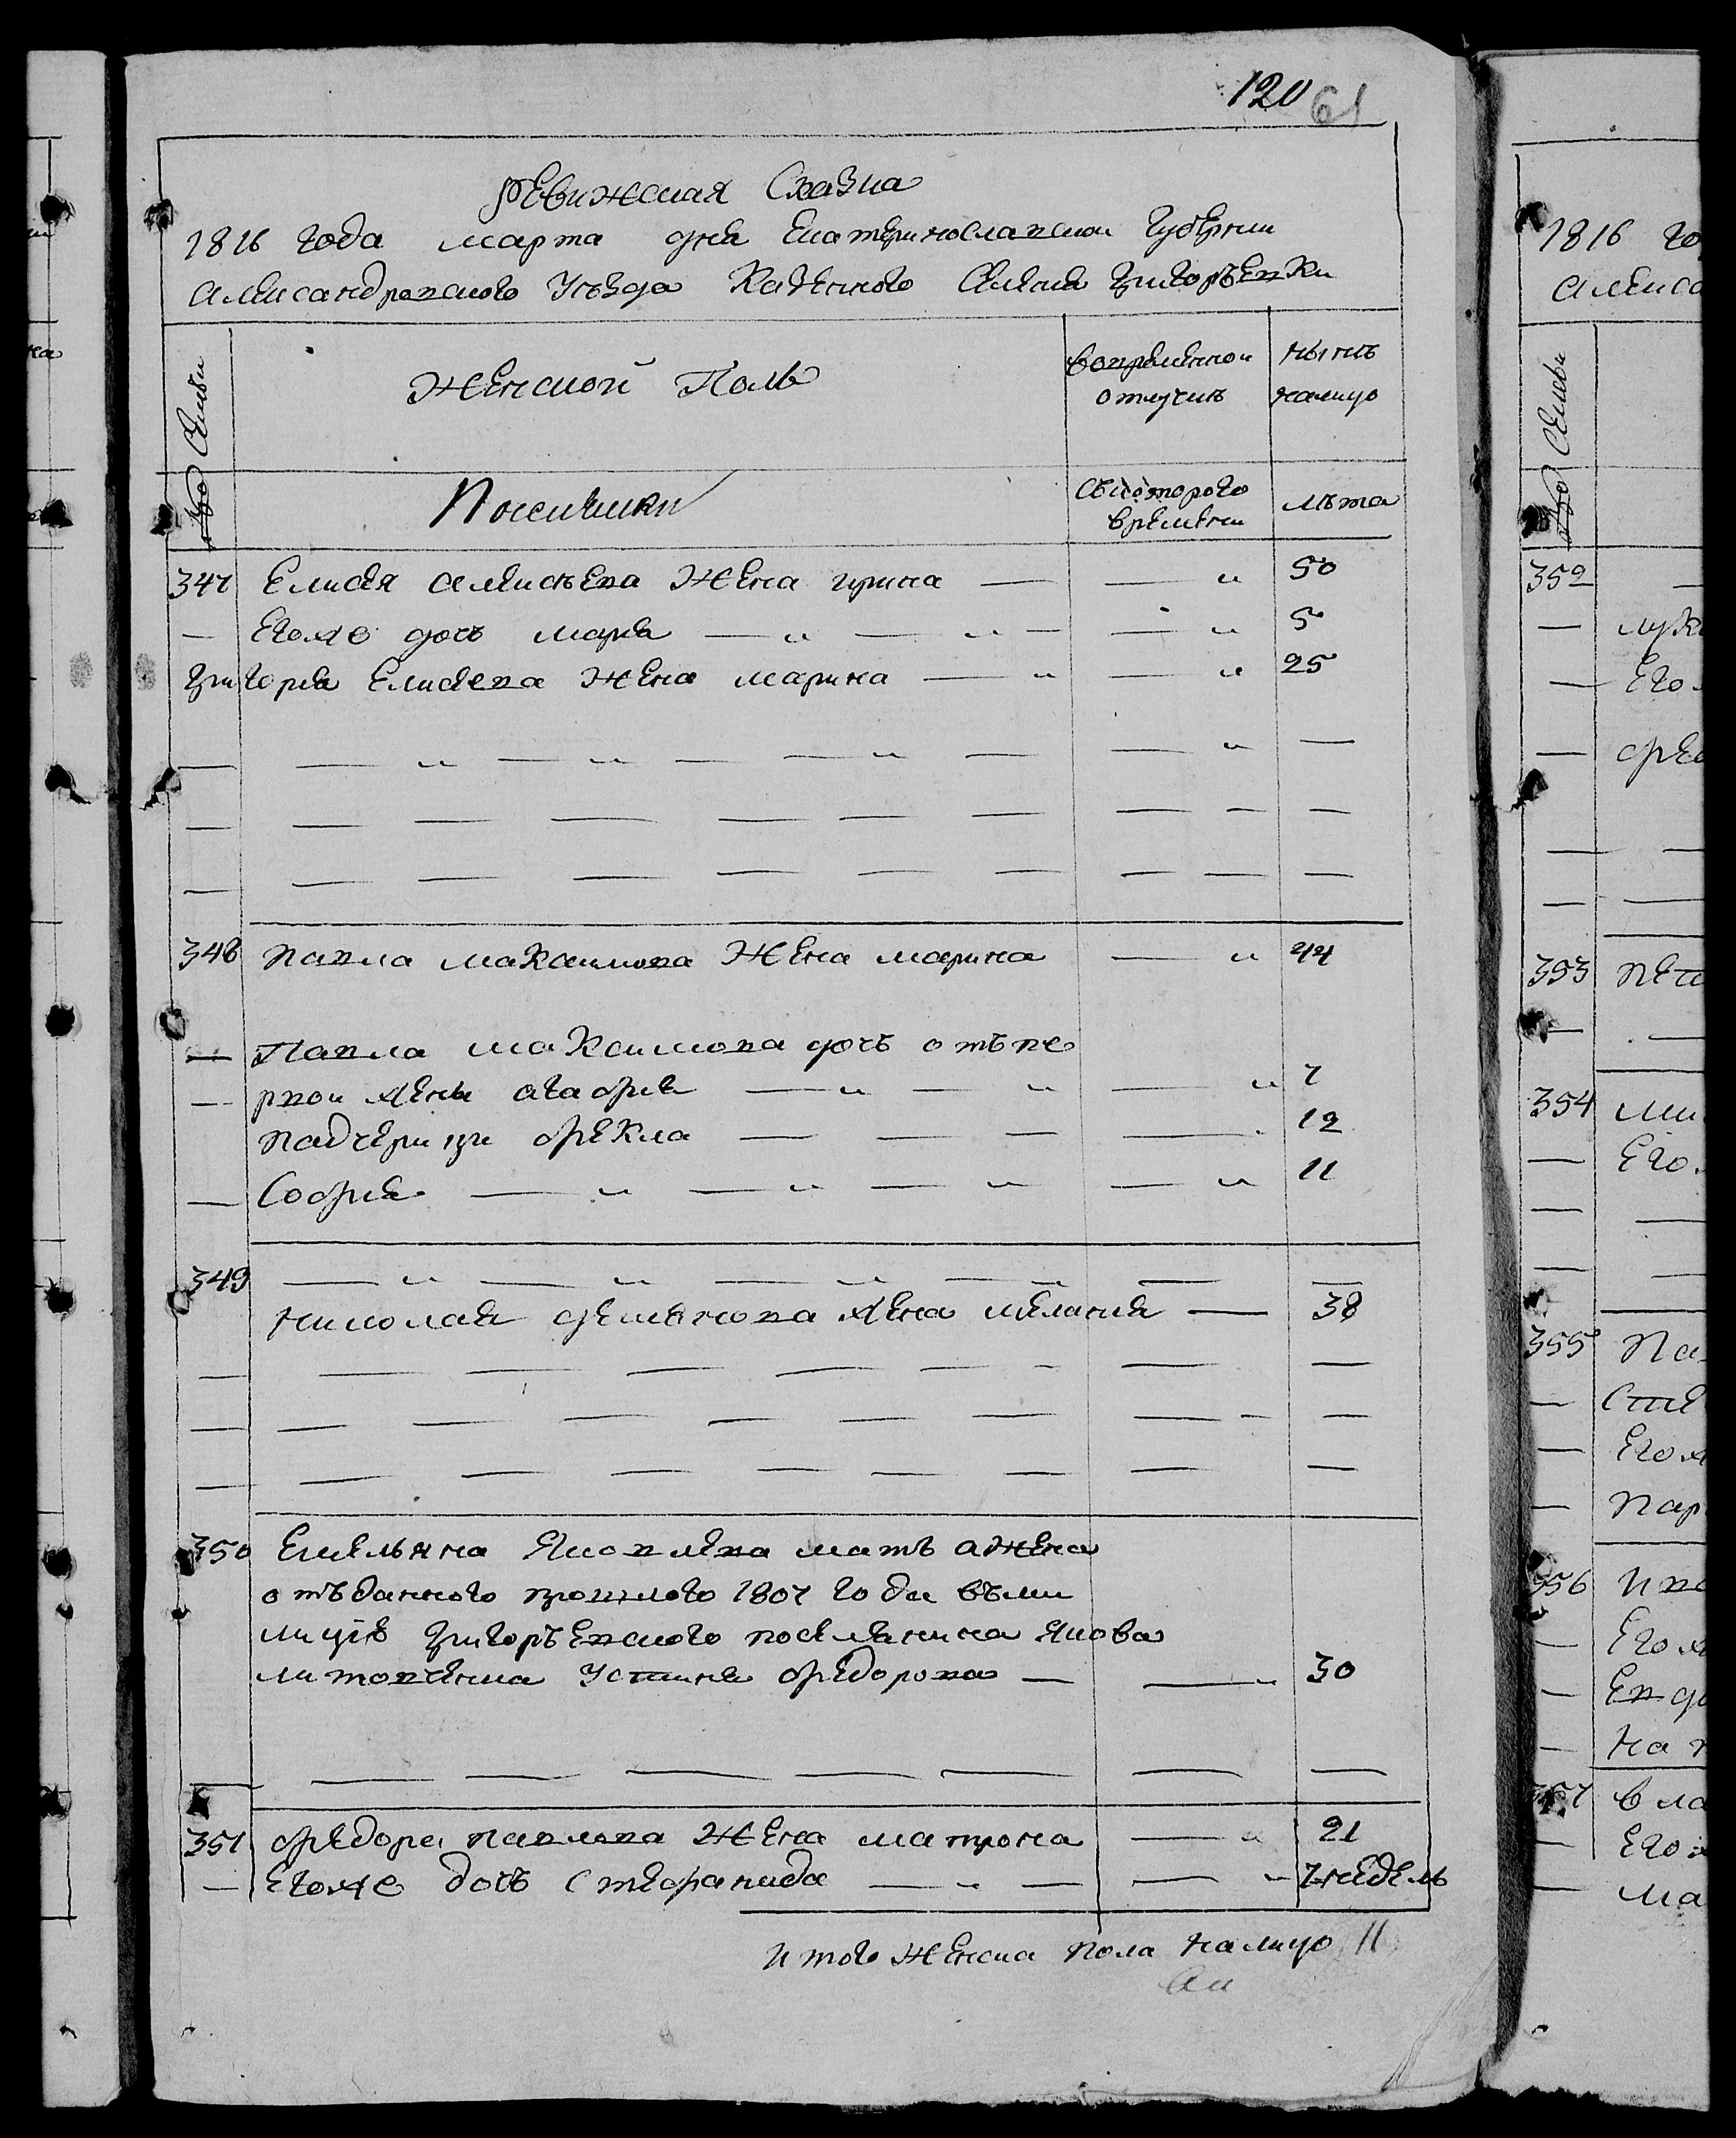 120 61
Ревижская Сказка
1816 года марта дня Екатеринославской Губернии
Александровского Уезда Казенного Селения Григорьевки
No Семьи
Женской Полъ
вовременной отлучкъ
нынъ налицо
Поселяики
Съкоторого времени
лъта
347 Елисея Алексъева Жена ирина — — " 50
— Егоже дочь марья — " — " — — " 5
Григорья Елисеева Жена марина — " — " 25
348 павла максимова Жена марина — " 44
— Павла максимова дочь отъпе
— рвои жены агафия — " — " — " 7
падчерици фекла — — — — 12
— София — " — " — " — " 11
349 — " — " — " — — — —
николая семенова жена мелания — 38
350 Емельяна Яковлева мать ажена
отъданного прошлого 1807 года въми
лицию григорьевского поселянина Якова
литовченка Устиния федорова — — " 30
351 федора павлова Жена матрона — " 21
— Егоже дочь Стефанида — " — — " 7 недель
Итого Женска пола налицо 11
1816 го
Алекса
No Семьи
352 —
— лук
— Его
353 пет
354 ми
— Его
355 Па
— Сте
— Егож
— пар
356 ива
— Егож
— Евдо
— на
357 вла
— Егож
— ма